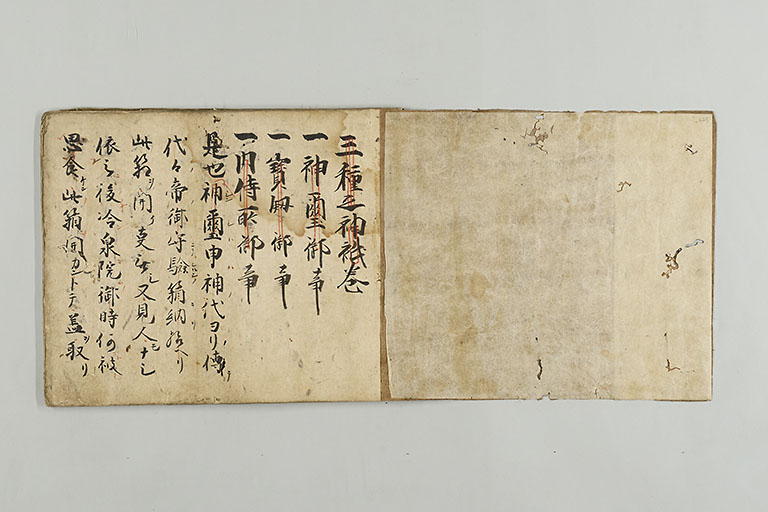 三種之神祇巻
一神璽御事
一寳劔御事
一内侍所御事
是也神璽申神代ヨリ傳ハリ
代々帝御守驗箱納給ヘリ
此箱ヲ開ク叓无シ又見人モナシ
依之後冷泉院御時何被
思食ケン此箱開カントテ盖取リ